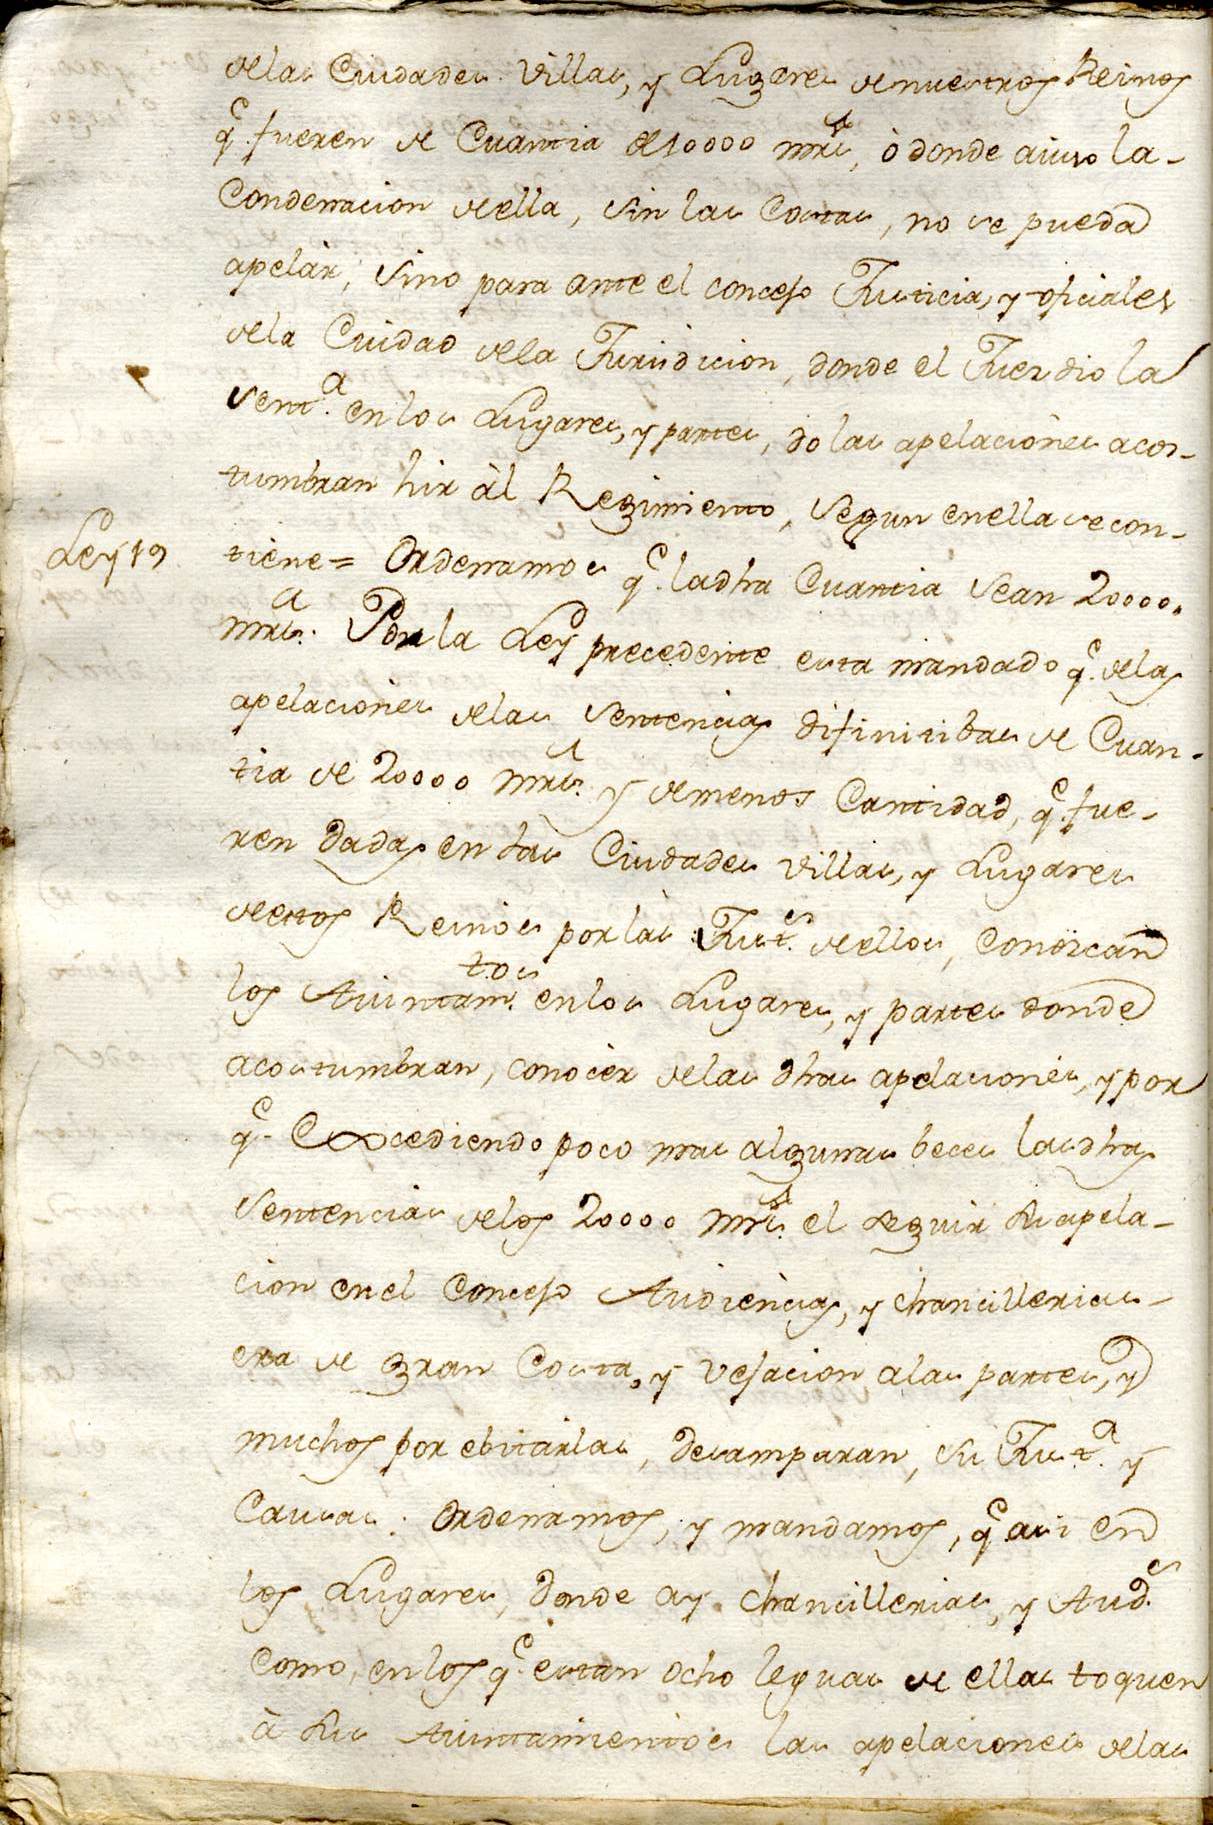 delas Ciudades Villas, y Lugares de nuestros Reinos
q.e fueren de Cuantia de 10000 mrs, ò donde aiuso la-
Condenacion de ella, sin las Costas, no se pueda
apelàr, sino para ante el concejo Justicia, y oficiales
dela Cuidad dela Jurisdicion, donde el Juez dio la
Sent.a en los Lugares, y partes, do las apelaciònes acos-
tumbran hir àl Regimiento, Segun en ella se con-
Ley 19
tiene = Ordenamos q.e la dha Cuantia sean 20000.
mrs. Por la Ley precedente esta mandado q.e delas
apelaciones delas Sentencias difinitibas de Cuan-
tia de 20000 mrs. y de menos Cantidad, q.e fue-
ren dadas en las Ciudades Villas, y Lugares
de estos Reinos por làs Just.s de ellos, Conozcan
los Aiuntam.tos en los Lugares, y partes donde
acostumbran, conocèr delas dhas apelaciones, y por
q.e Excediendo poco mas algunas beces las dhas
Sentencias delos 20000 mrs. el seguir su apela-
cion en el Concejo Audièncias, y chancillerias-
era de gran Costa, y Vejacion a las partes, y
muchos por ebitàrlas, desamparan, su Just.a y
Causas: Ordenamos, y mandamos, q.e asi en
los Lugares, donde ay chancillerias, y Aud.s
Como, en los q.e estan ocho leguas de ellas toquen
à sus Aiuntamientos las apelaciones delas